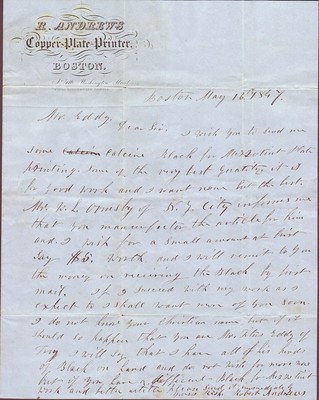 R. ANDREWS
Copper-Plate Printer,
BOSTON.
Boston May 16th 1847.
Mr Eddy, Dear Sir. I wish you to send me
some Calcine Black for Mezzotint Plate
printing. some of the very best quality it is
for good work and I want none but the best.
Mr. W. L. Ormsby of N. Y. City informs me
that you manufactor the article for him
and. I wish for a small amount at first
say $5. Worth and I will remit to you
the money on receiving the Black by first
mail. If I succeed with my work as I
expect to I shall want more of you soon.
I do not know your Christian name but if it
should so happen that you are Mr. Eddy of
Troy I will say that I have all of his kinds
of Black on hand and do not wish for more now
But if you have a different Black for Mezzotint
and better please send immediately
Yours Resp. Robert Andrews